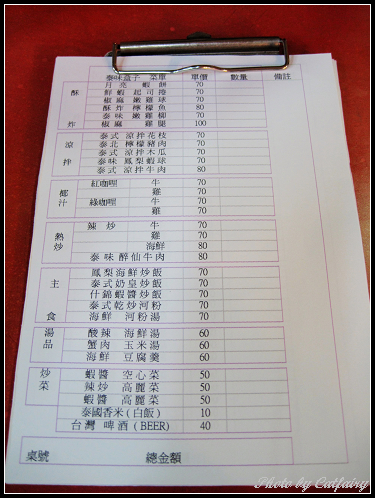 泰味盒子 菜單 單價 數量 備註
酥炸
月亮蝦餅 70
鮮蝦起司捲 70
椒麻嫩雞球 70
酥炸檸檬魚 80
泰味嫩雞柳 70
椒麻雞腿 100
涼拌
泰式涼拌花枝 70
泰北檸檬豬肉 70
泰式涼拌木瓜 70
泰味鳳梨蝦球 70
泰式涼拌牛肉 80
椰汁
紅咖哩 牛 70
雞 70
綠咖哩 牛 70
雞 70
熱炒
辣炒 牛 70
雞 70
海鮮 80
泰味醉仙牛肉 80
主食
鳳梨海鮮炒飯 70
泰式奶皇炒飯 70
什錦蝦醬炒飯 70
泰式乾炒河粉 70
海鮮 河粉湯 70
湯品
酸辣 海鮮湯 60
蟹肉 玉米湯 60
海鮮 豆腐羹 60
炒菜
蝦醬 空心菜 50
辣炒 高麗菜 50
蝦醬 高麗菜 50
泰國香米(白飯) 10
台灣 啤酒(BEER) 40
桌號 總金額
Photo by Catfairy